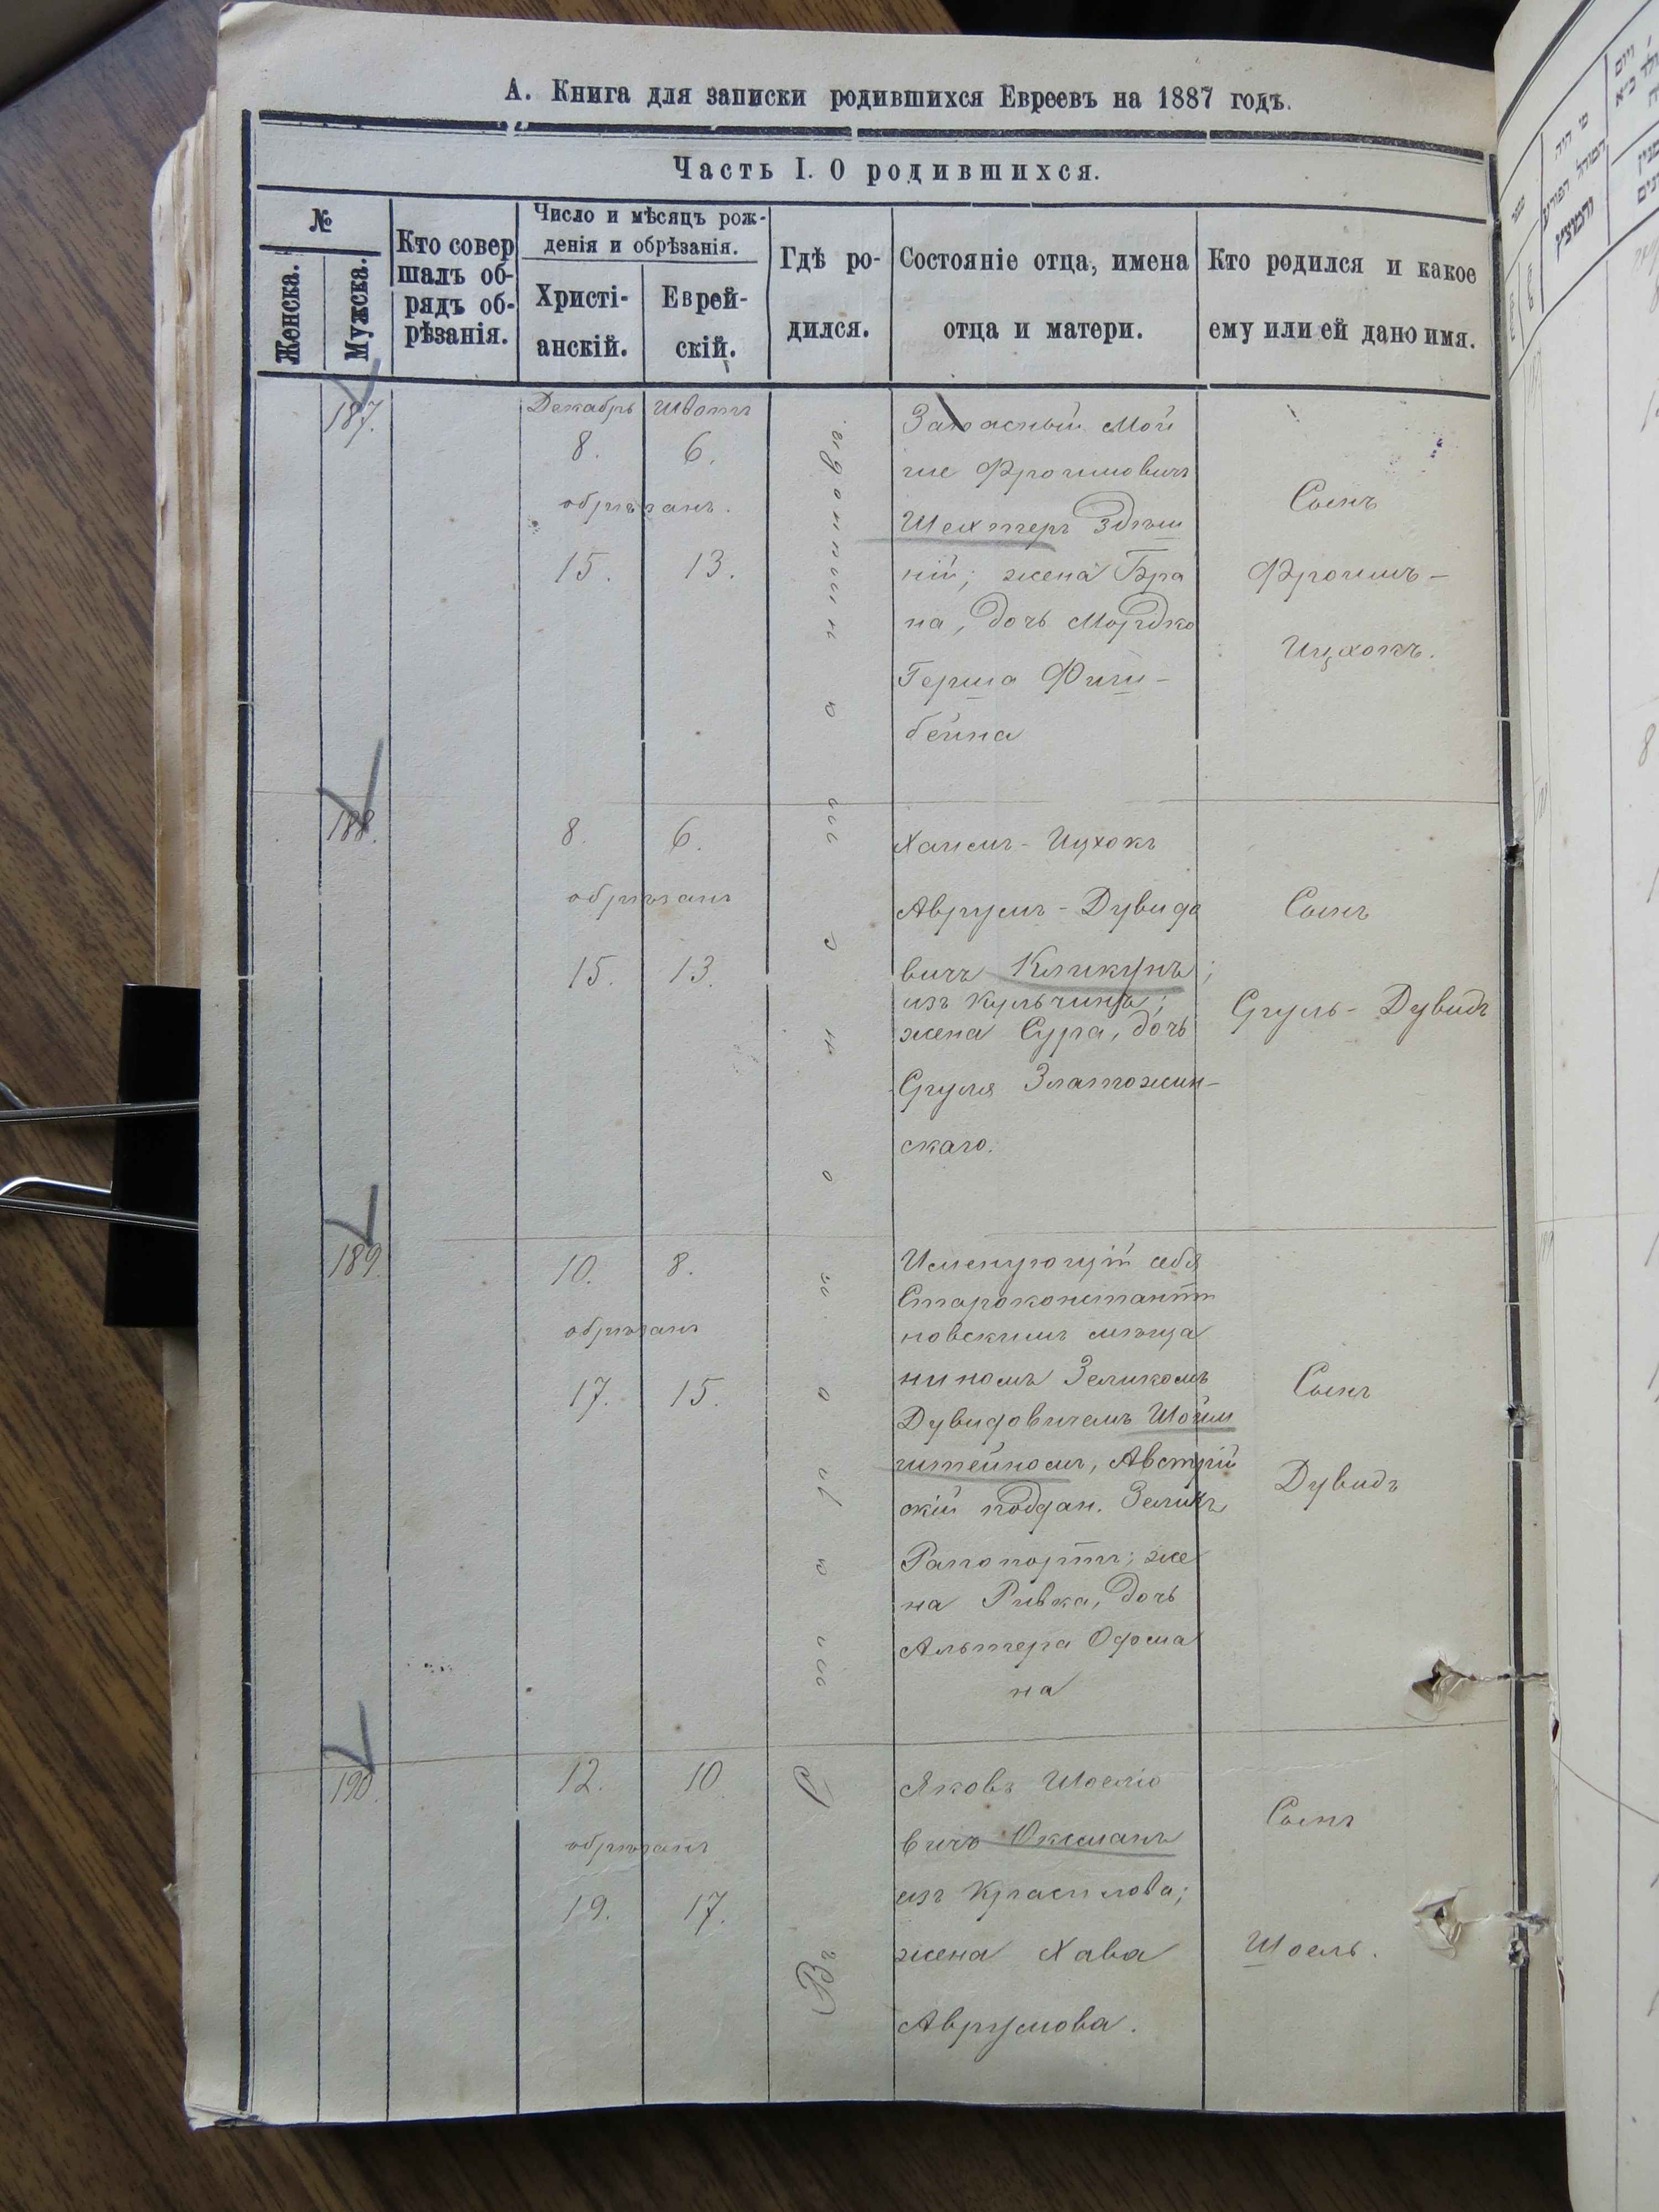 А. Книга для записки родившихся Евреевъ на 1887 годъ.
Часть I. О родившихся.
№
Женска.
Мужска.
Кто совер
шалъ об-
рядъ об-
рѣзанія.
Число и мѣсяцъ рож-
денія и обрѣзанія.
Христі-
анскій.
Еврей-
скій.
Гдѣ ро-
дился.
Состояніе отца, имена
отца и матери.
Кто родился и какое
ему или ей дано имя.
187.
Декабрь
8.
обрѣзанъ.
15.
Шватъ
6.
13.
Запасный Мой
ше Фроимовичъ
Шехтеръ Здѣш
ній; жена Бра
на, дочь Мордко
Герша
бейна
Сынъ
Фроимъ-
Ицхокъ.
188.
8.
6.
обрѣзанъ
15.
13.
Хаимъ-Ицхокъ
Аврумъ-Дувидо
вичъ Кликунъ;
изъ Кульчина;
жена Сура, дочь
Сруля Златожин-
скаго.
Сынъ
Сруль-Дувидъ
189.
10.
8.
обрѣзанъ
17.
15.
Именующій себя
Староконстанти
новскимъ мѣща
ниномъ Зеликомъ
Дувидовичемъ Шойм
штейномъ, Австрій
скій поддан. Зеликъ
Рапопортъ; же
на Ривка, дочь
Альтера Офма
на
Сынъ
Дувидъ
190.
12.
10.
обрѣзанъ
19.
17.
Яковъ Шоеліо
вичъ Оксманъ
изъ Красилова;
жена Хава
Аврумова.
Сынъ
Шоель.
Въ